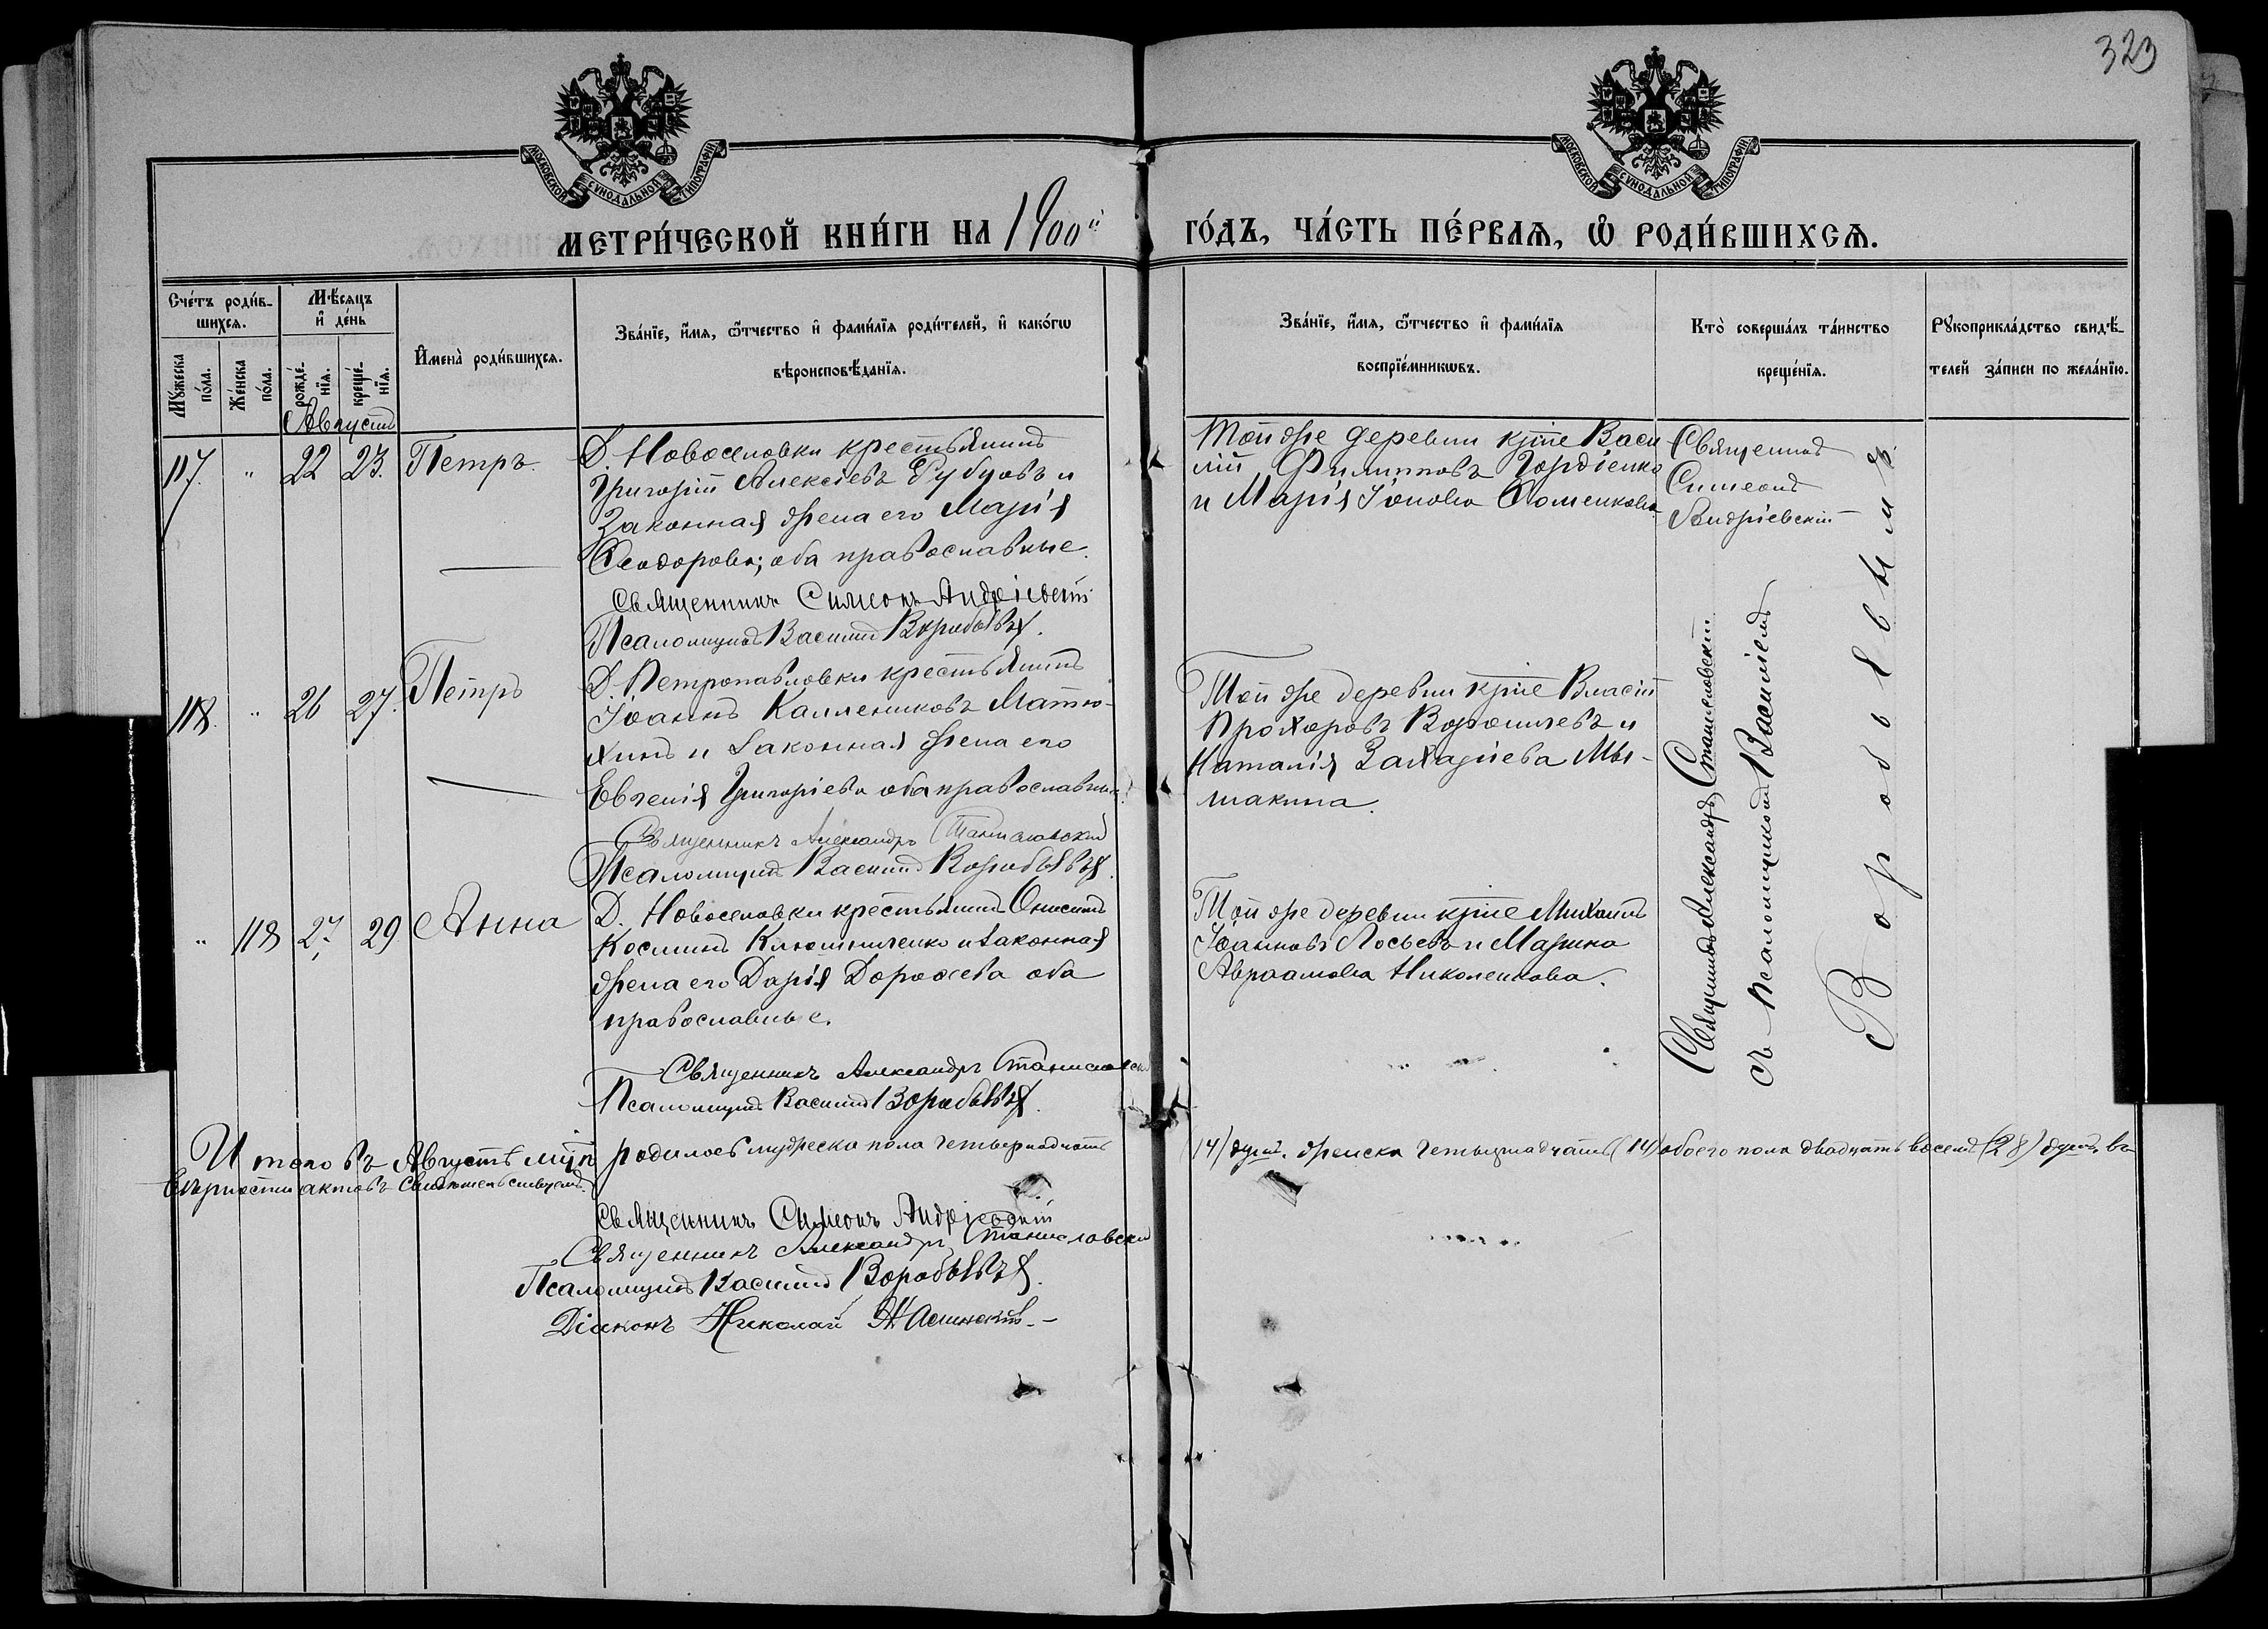 323
МОСКОВСКОЙ СѴНОДАЛЬНОЙ ТИПОГРАФІИ
МОСКОВСКОЙ СѴНОДАЛЬНОЙ ТИПОГРАФІИ
МЕТРИ́ЧЕСКОЙ КНИ́ГИ НА 1900й
ГО́ДЪ, ЧА́СТЬ ПЕ́РВАѦ, Ѽ РОДИ́ВШИХСѦ.
Сче́тъ роди́в-
шихсѧ.
Мꙋ́жеска по́ла.
Же́нска по́ла.
Мѣ́сѧцъ
и҆ де́нь
рожде́-
нїѧ.
креще́-
нїѧ.
И҆мена̀ роди́вшихсѧ.
Зва́нїе, и҆́мѧ, ѻ҆́тчество и҆ фами́лїѧ роди́телей, и҆ како́гѡ
вѣроисповѣ́данїѧ.
Зва́нїе, и҆́мѧ, ѻ҆́тчество и҆ фами́лїѧ
воспрїе́мникѡвъ.
Кто̀ соверша́лъ та́инство
креще́нїѧ.
Рꙋкоприкла́дство свидѣ́-
телей за́писи по жела́нїю.
Августъ
117. " 22 23. Петръ.
Д. Новоселовки крестьянинъ
Григорій Алексіевъ и
законная жена его Марія
Ѳеодорова; оба православные.
Священникъ Симеонъ Андріевскій
Псаломщикъ Василій Воробьевъ.
Той же деревни кр-не Васи
лій Филипповъ Гордіенко
и Марія Іонова Ѳоменкова
Священникъ
Симеонъ
Андріевскій
118. " 26 27. Петръ
Д. Петропавловки крестьянинъ
Іоаннъ Каллениковъ Матю-
хинъ и законная жена его
Евгенія Григоріева оба православные.
Священникъ Александръ Станиславскій
Псаломщикъ Василій Воробьевъ.
Той же деревни кр-не Власій
Прохоровъ и
Наталія Захаріева Мы-
шакина.
" 118 27. 29 Анна
Д. Новоселовки крестьянинъ Онисимъ
Косминъ Ключниченко и законная
жена его Дарія Дороѳеева оба
православные.
Священникъ Александръ Станиславскій
Псаломщикъ Василій Воробьевъ.
Той же деревни кр-не Михаилъ
Іоанновъ Лосьевъ и Марина
Авраамова Николенкова.
Священникъ Александръ Станиславскій
съ псаломщикомъ Василіемъ
Воробьевымъ
Итого въ Августѣ м-цѣ родилось мужеска пола четырнадцать (14) душъ, женска четырнадцать (14) обоего пола двадцать восемь (28) душъ, въ
вѣрности актовъ свидѣтельствуемъ.
Священникъ Симеонъ Андріевскій
Священникъ Александръ Станиславскій
Псаломщикъ Василій Воробьевъ.
Діаконъ Николай